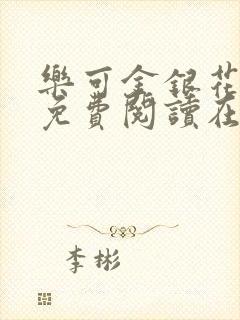 樂可金銀花
免費閱讀在
李彬